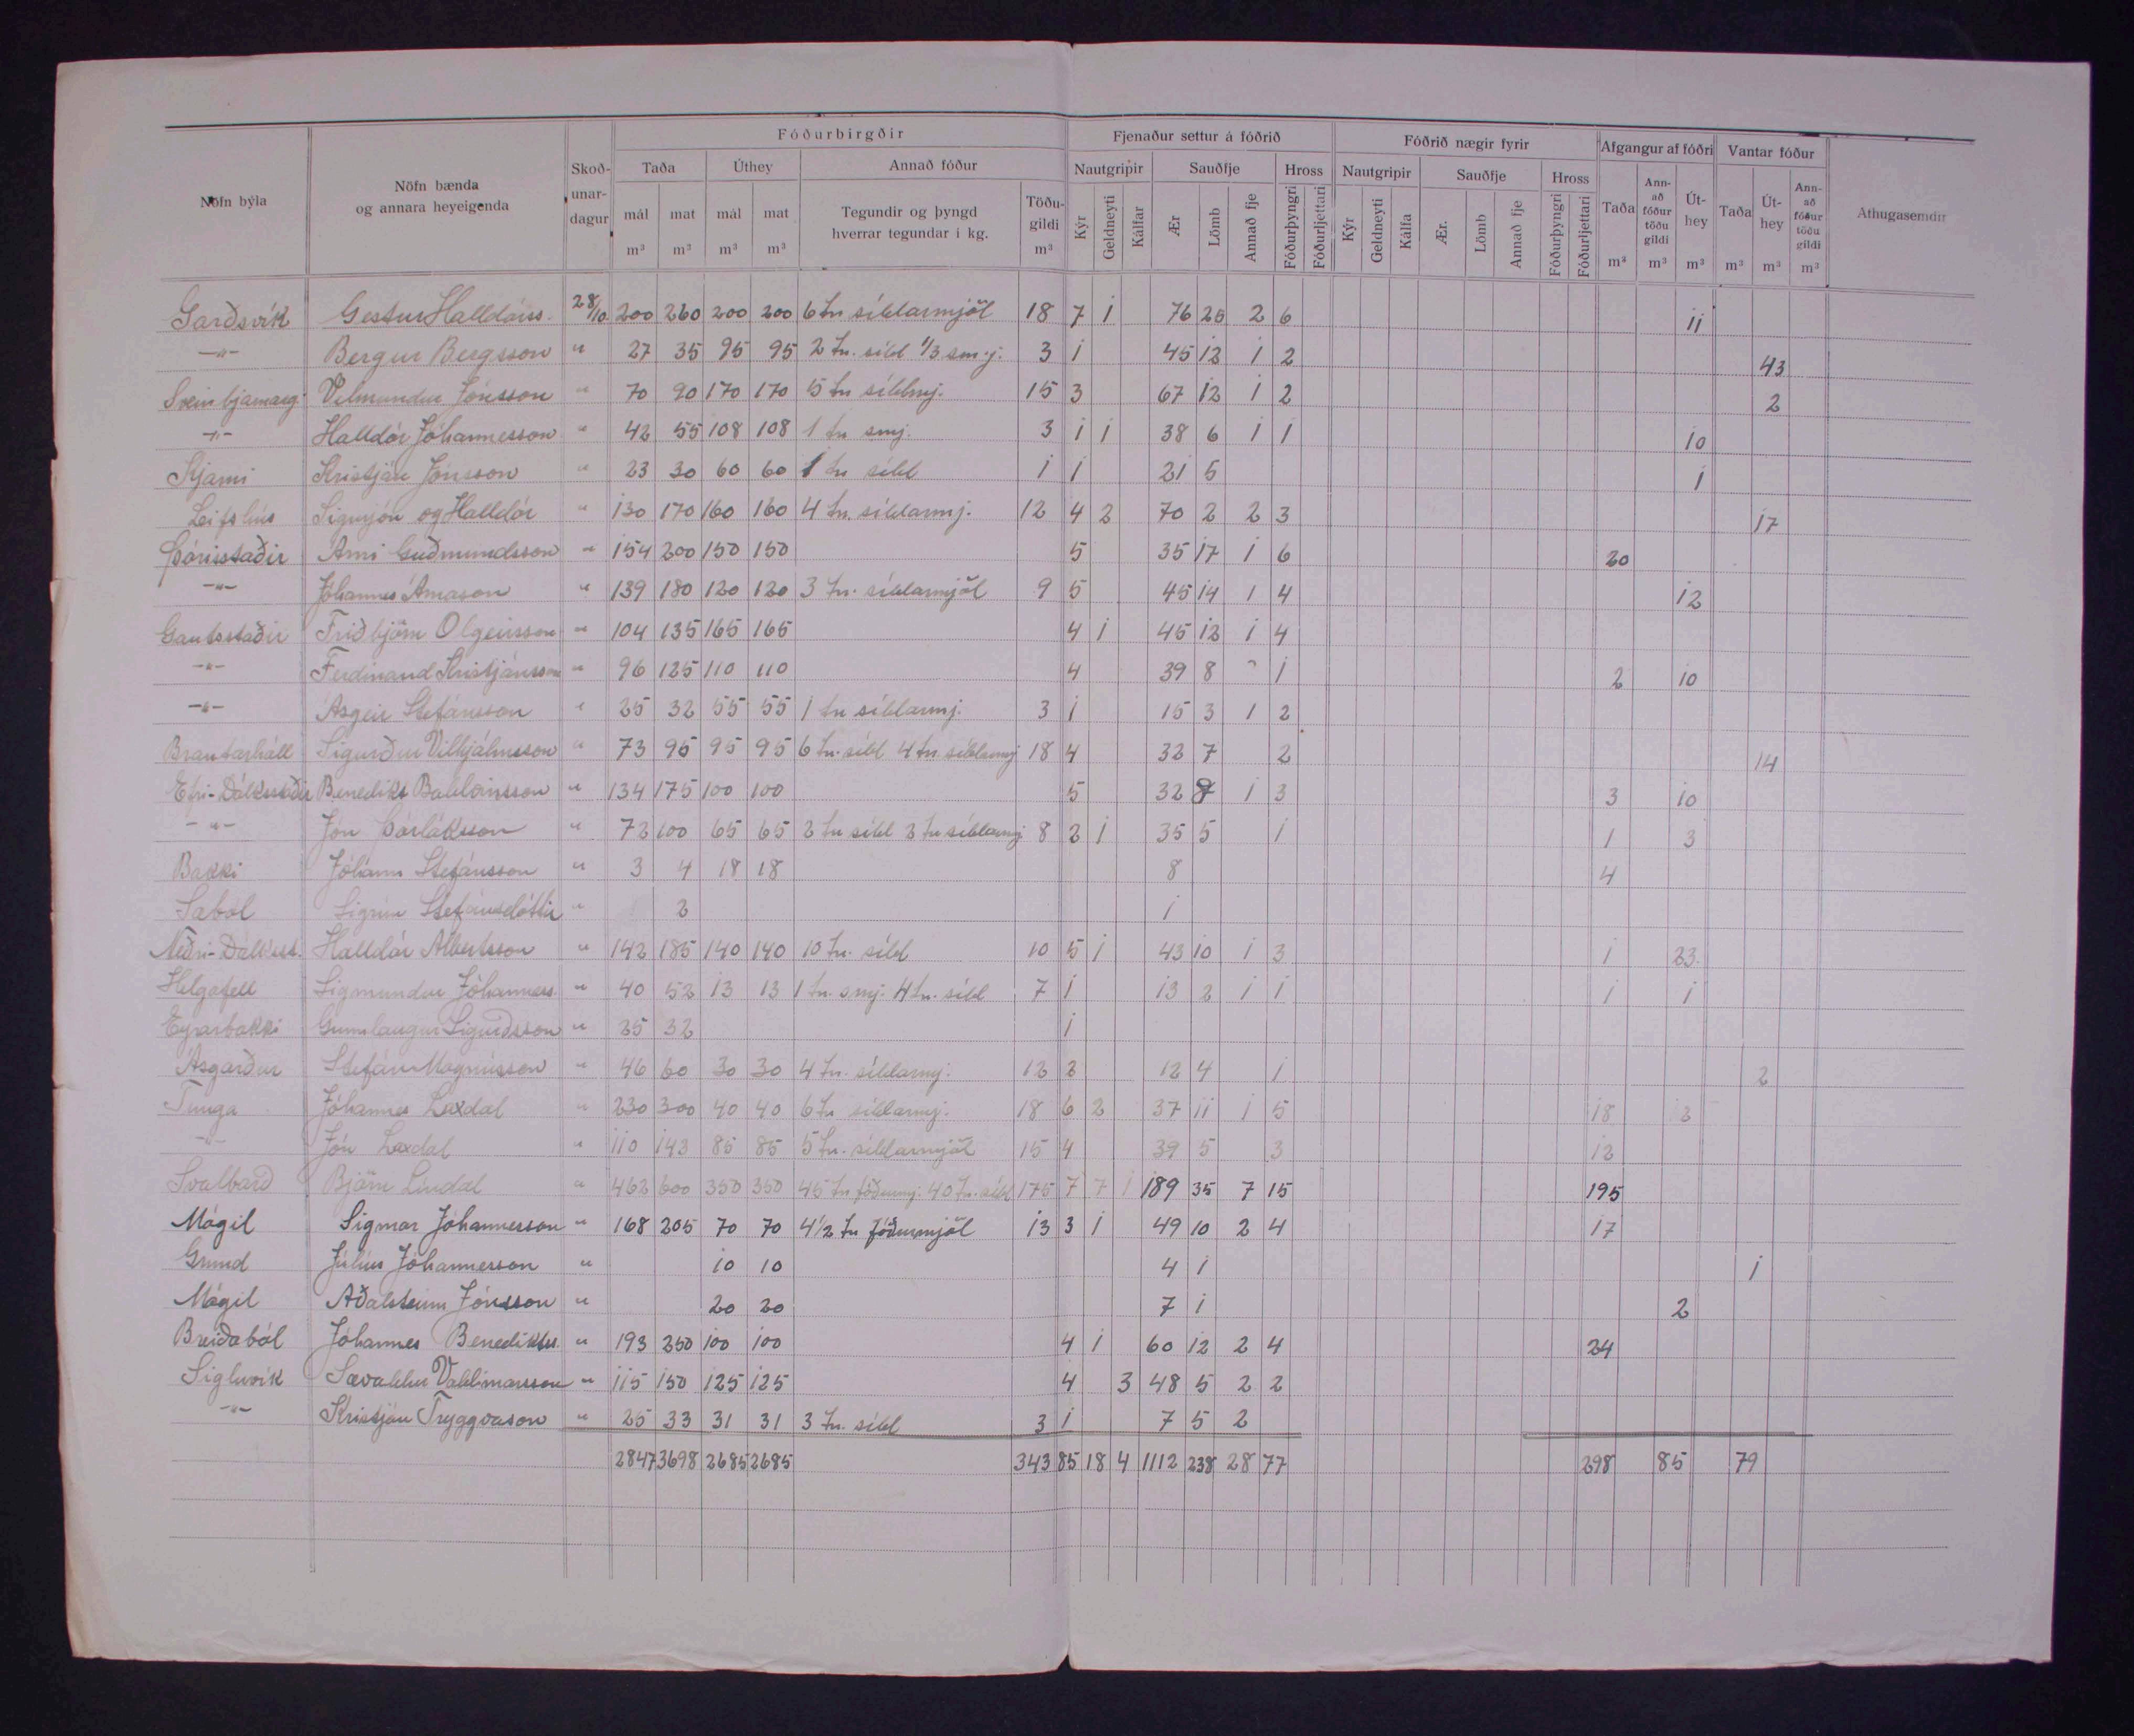 Fóðurbirgðir Fjenaður settur á fóðrið Fóðrið nægir fyrir Afgangur af fóðri Vantar fóður
Nöfn býla Nöfn bænda og annara heyeigenda Skoðunardagur Taða Úthey Annað fóður Nautgripir Sauðfje Hross Nautgripir Sauðfje Hross Taða Annað fóður töðu gildi Úthey Taða Úthey Annað fóður töðu gildi Athugasemdir
mál mat mál mat Tegundir og þyngd hverrar tegundar í kg. Töðugildi Kýr Geldneyti Kálfar Ær Lömb Annað fje Fóðurþyngri Fóðurljettari Kýr Geldneyti Kálfa Ær. Lömb Annað fje Fóðurþyngri Fóðurljettari
m³ m³ m³ m³ m³ m³ m³ m³ m³ m³ m³
Garðsvík Gestur Halldórss. 28/10 200 260 200 200 6 tn síldarmjöl 18 7 1 76 20 2 6 11
-"- Bergur Bergsson " 27 35 95 95 2 tn. síld 1/3 smj. 3 1 45 12 1 2 43
Sveinbjarnarg. Velmundur Jónsson " 70 90 170 170 5 tn síldmj. 15 3 67 12 1 2 2
-"- Halldór Jóhannesson " 42 55 108 108 1 tn smj. 3 1 1 38 6 1 1 10
Kjarni Kristján Jónsson " 23 30 60 60 1 tn síld 1 1 21 5 1
Leifshús Sigurjón og Halldór " 130 170 160 160 4 tn. síldarmj. 12 4 2 70 2 2 3 17
Þórisstaðir Árni Guðmundsson " 154 200 150 150 5 35 17 1 6 20
-"- Jóhannes Árnason " 139 180 120 120 3 tn. síldarmjöl 9 5 45 14 1 4 12
Gautsstaðir Friðbjörn Olgeirsson " 104 135 165 165 4 1 45 12 1 4
-"- Ferdinand Kristjánsson " 96 125 110 110 4 39 8 " 1 2 10
-"- Ásgeir Stefánsson " 25 32 55 55 1 tn síldarmj. 3 1 15 3 1 2
Brautarhóll Sigurður Vilhjálmsson " 73 95 95 95 6 tn. síld 4 tn. síldarmj 18 4 32 7 2 14
Efri-Dálksstaðir Benedikt Baldvinsson " 134 175 100 100 5 32 7 1 3 3 10
-"- Jón Þorláksson " 72 100 65 65 2 tn síld 2 tn síldarmj 8 2 1 35 5 1 1 3
Bakki Jóhann Stefánsson " 3 4 18 18 8 4
Sæból Sigrún Stefánsdóttir " 2 1
Neðri-Dálksst. Halldór Albertsson " 142 185 140 140 10 tn. síld 10 5 1 43 10 1 3 1 23
Helgafell Sigmundur Jóhanness. " 40 52 13 13 1 tn. smj. 4 tn. síld 7 1 13 2 1 1 1 1
Eyrarbakki Gunnlaugur Sigurðsson " 25 32 1
Ásgarður Stefán Magnússon " 46 60 30 30 4 tn. síldarmj. 12 2 12 4 1 2
Tunga Jóhannes Laxdal " 230 300 40 40 6 tn síldarmj. 18 6 2 37 11 1 5 18 2
-"- Jón Laxdal " 110 143 85 85 5 tn. síldarmjöl 15 4 39 5 3 12
Svalbarð Björn Líndal " 462 600 350 350 45 tn fóðurmj. 40 tn. síld 175 7 7 1 189 35 7 15 195
Mógil Sigmar Jóhannesson " 168 205 70 70 4 1/2 tn fóðurmjöl 13 3 1 49 10 2 4 17
Grund Júlíus Jóhannesson " 10 10 4 1 1
Mógil Aðalsteinn Jónsson " 20 20 7 1 2
Breiðaból Jóhannes Benediktss. " 193 250 100 100 4 1 60 12 2 4 24
Sigluvík Sævaldur Valdimarsson " 115 150 125 125 4 3 48 5 2 2
-"- Kristján Tryggvason " 25 33 31 31 3 tn. síld 3 1 7 5 2
2847 3698 2685 2685 343 85 18 4 1112 238 28 77 298 85 79